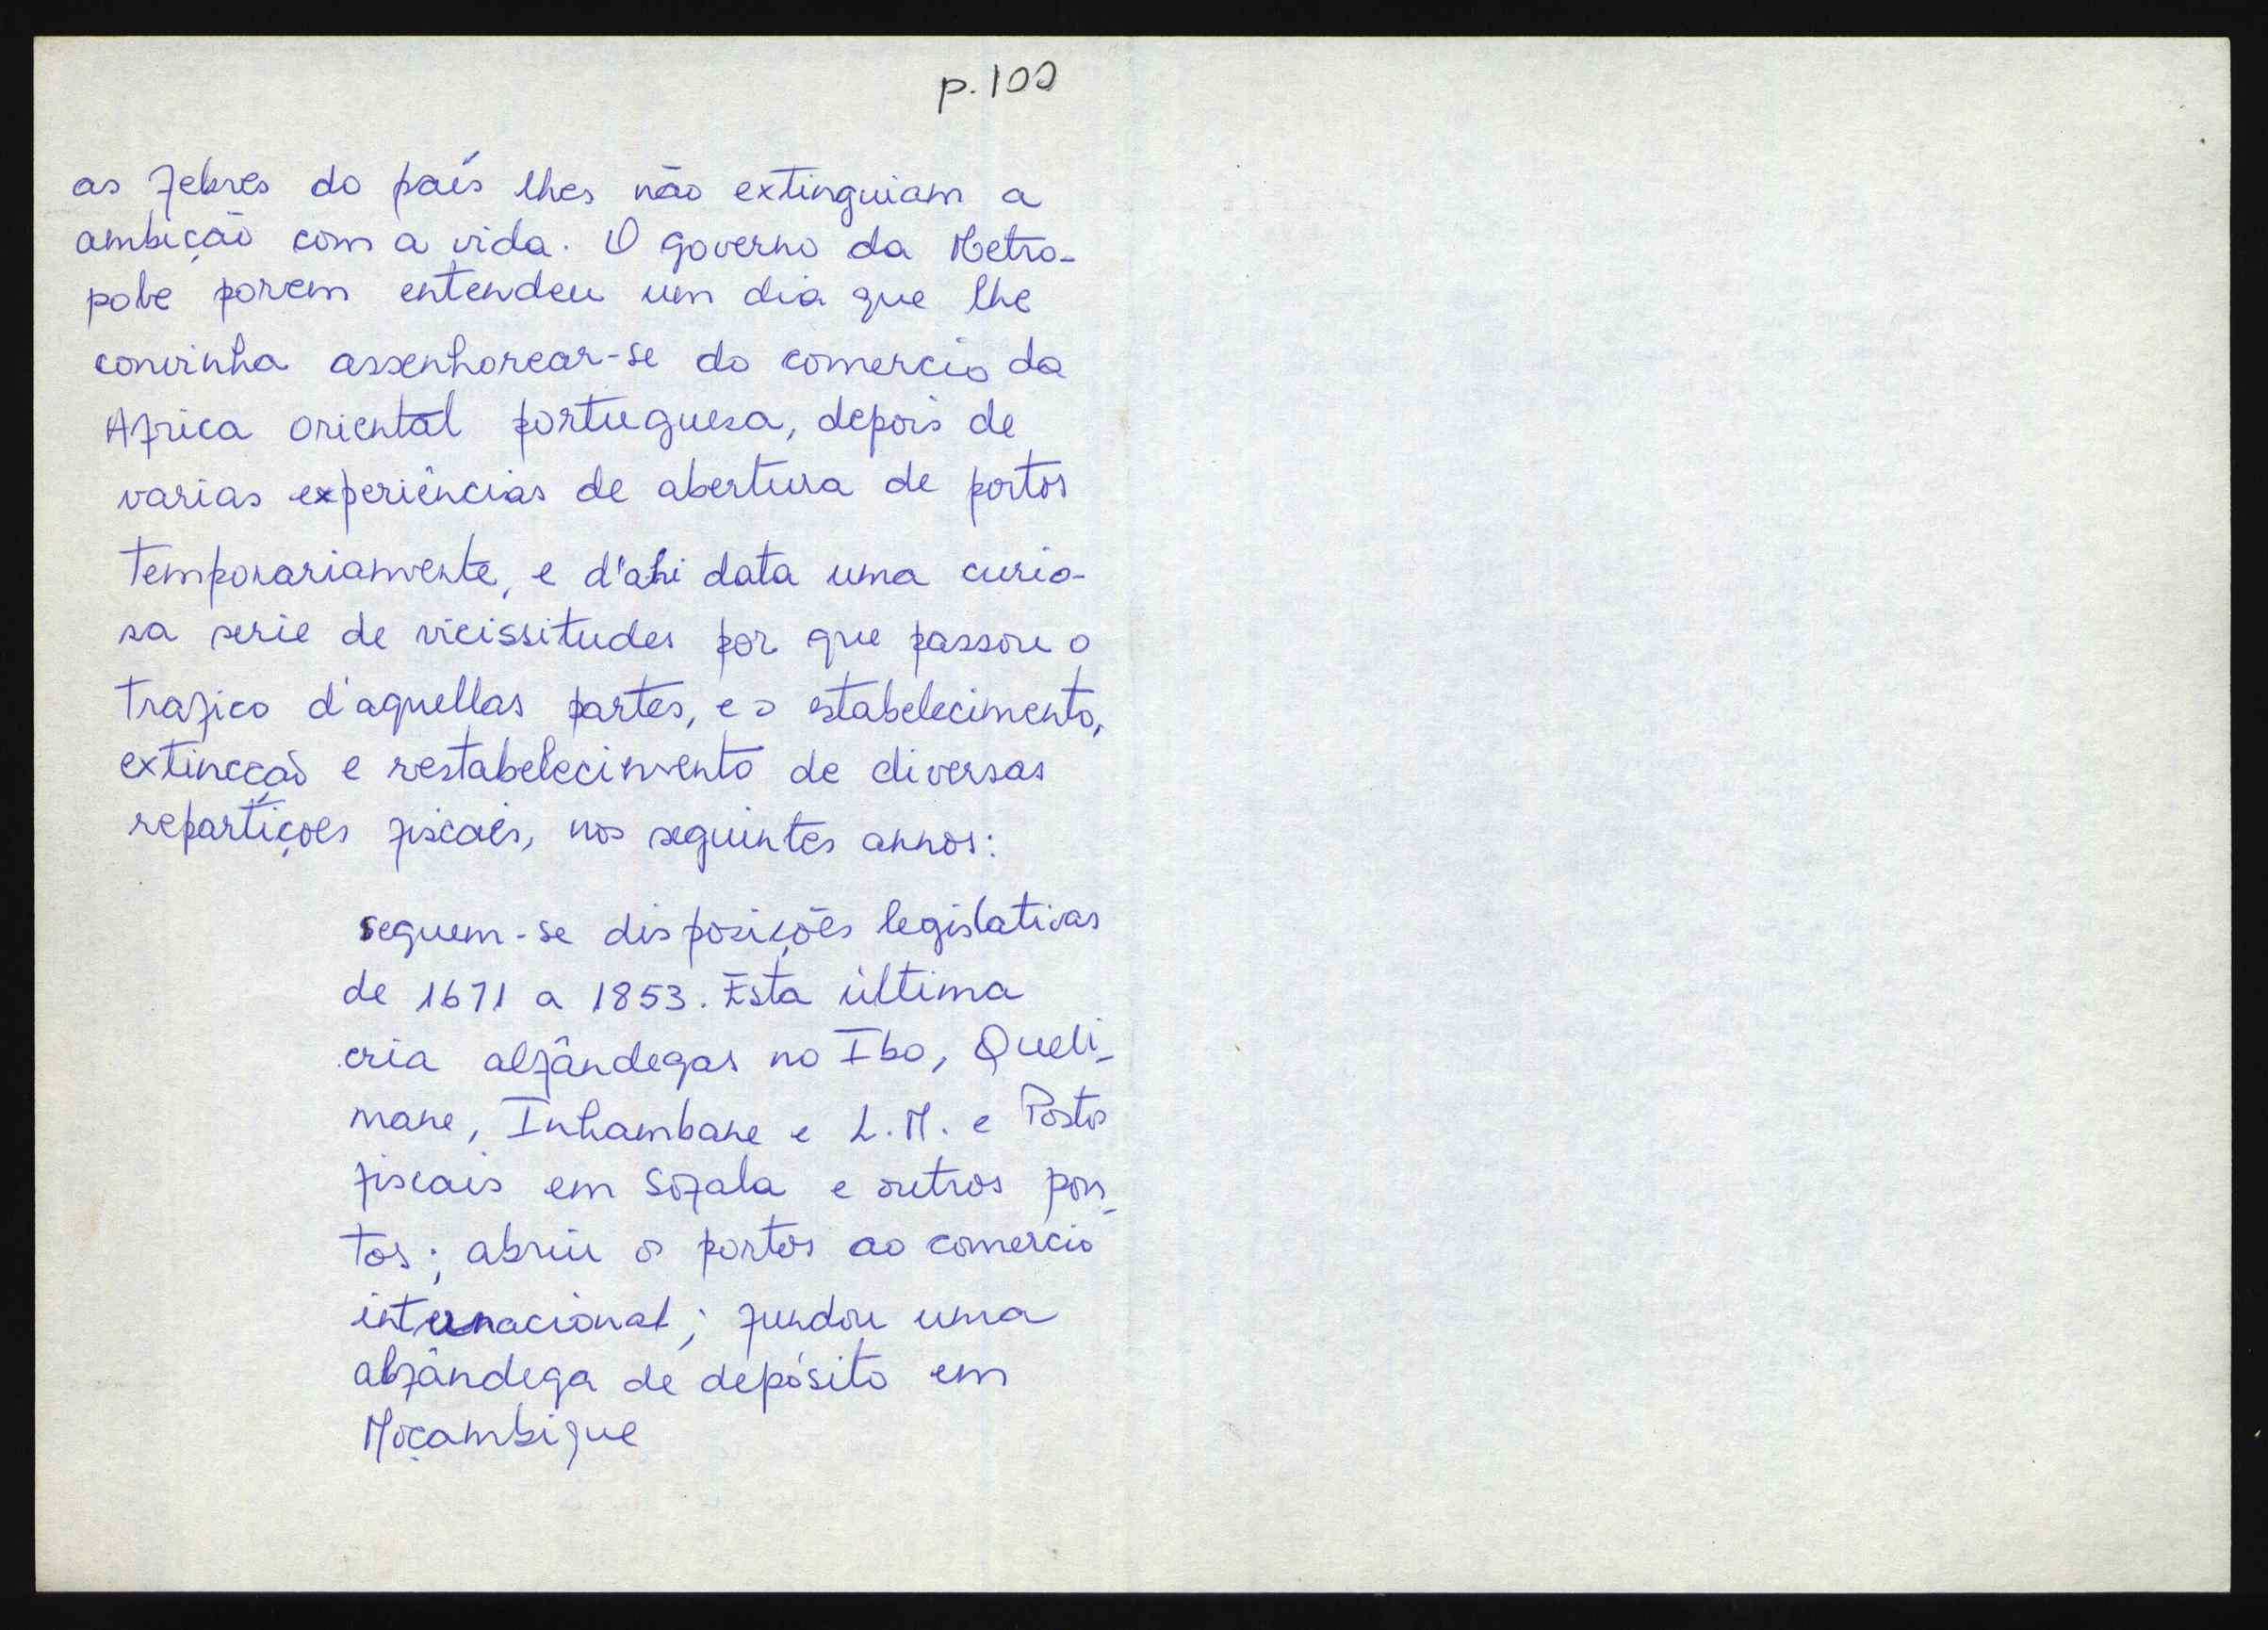 p.100
as febres do país lhes não extinguiam a
ambição com a vida. O governo da Metro-
pole porem entendeu um dia que lhe
convinha assenhorear-se do comercio da
Africa oriental portuguesa, depois de
varias experiências de abertura de portos
temporariamente, e d'ahi data uma curio-
sa serie de vicissitudes por que passou o
trafico d'aquellas partes, e o estabelecimento,
extincção e restabelecimento de diversas
repartições fiscaes, nos seguintes annos:
seguem-se disposições legislativas
de 1671 a 1853. Esta última
cria alfândegas no Ibo, Queli-
mane, Inhambane e L.M. e Postos
fiscais em Sofala e outros pon-
tos; abriu os portos ao comercio
internacional; fundou uma
alfândega de depósito em
Moçambique